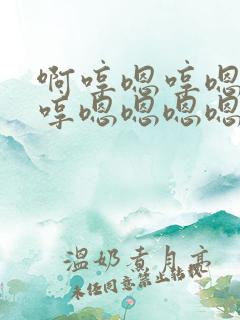 啊哼嗯哼嗯
哼嗯嗯嗯嗯
温奶煮月亮
未任同意禁止转载